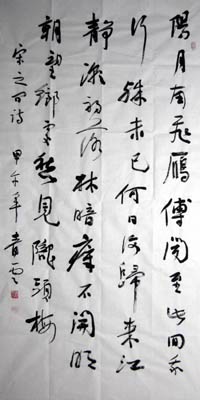 陽月南飛雁傳聞至此回我
行殊未已何日復歸來江
静潮初落林暗瘴不開明
朝望鄉處應見隴頭梅
宋之問詩 甲午年 青雲